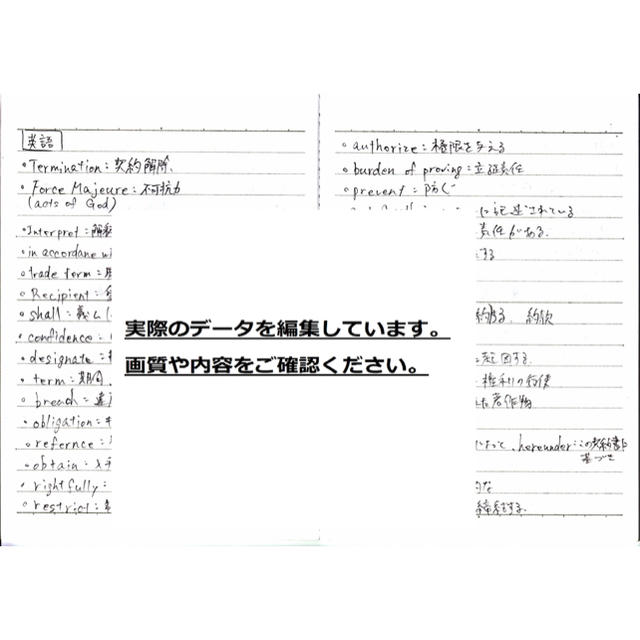 英語
・Termination：契約解除、
・Force Majeure：不可抗力
(acts of God)
・Interpret：解
・in accordane wi
・trade term：
・Recipient：
・shall：義ム
・confidence：
・designate：
・term：期間、
・breach：違
・obligation：
・refernce：
・obtain：入手
・rightfully：
・restrict：
実際のデータを編集しています。
画質や内容をご確認ください。
・authorize：権限を与える
・burden of proving：立証責任
・prevent：防ぐ
に記述されている
責任がある.
する
約款
起因する.
権利の行使
た著作物
によって、hereunder：この契約書に
基づき
的な
締結する.